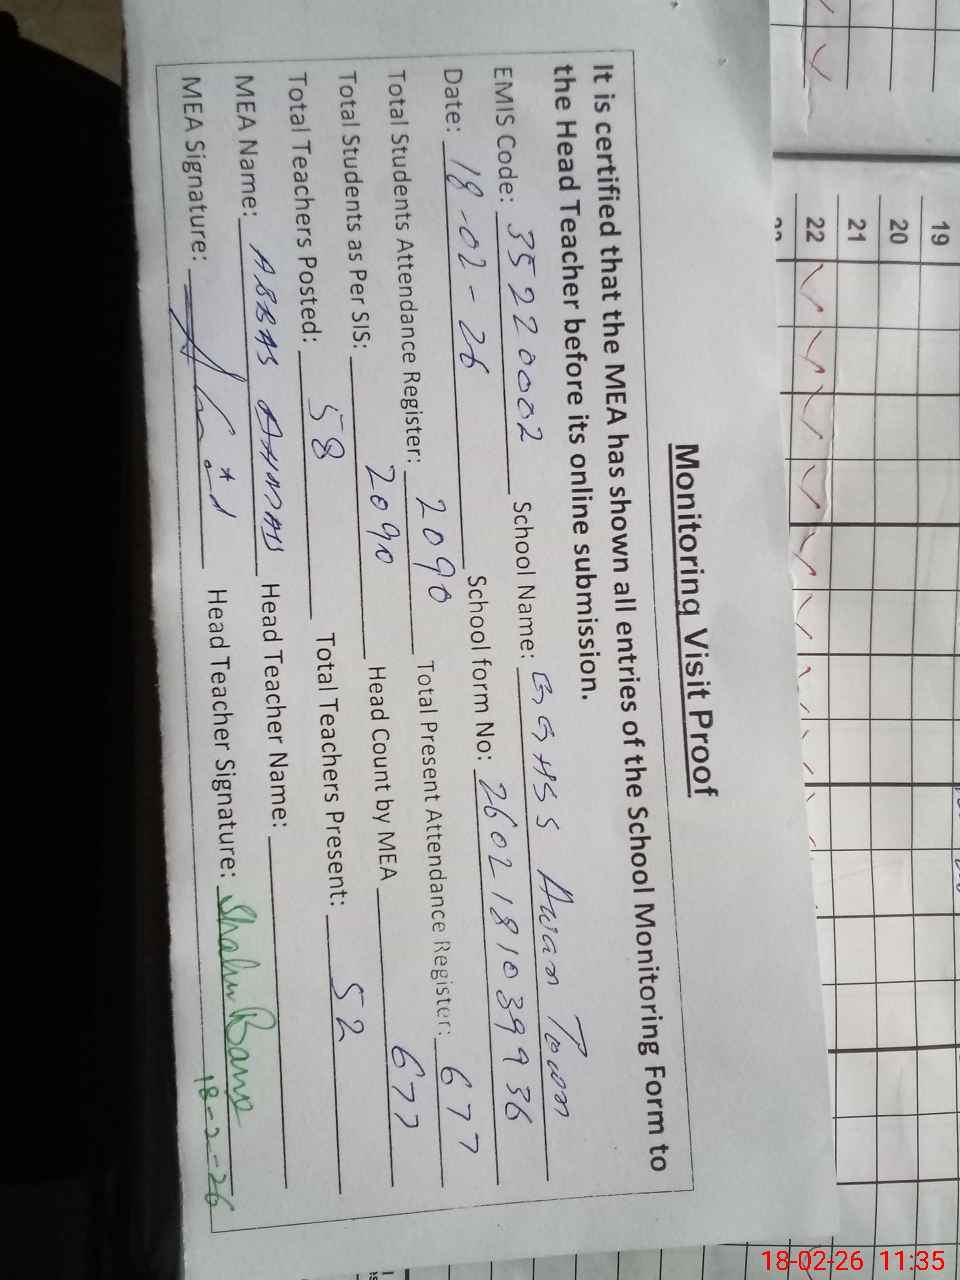 Monitoring Visit Proof
It is certified that the MEA has shown all entries of the School Monitoring Form to
the Head Teacher before its online submission.
EMIS Code: 35220002 School Name: GGHSS Awan Town
Date: 18-02-26 School form No: 2602181039936
Total Students Attendance Register: 2090 Total Present Attendance Register: 677
Total Students as Per SIS: 2090 Head Count by MEA 677
Total Teachers Posted: 58 Total Teachers Present: 52
MEA Name: ABBAS AHMAD Head Teacher Name:
MEA Signature: Head Teacher Signature: Shahr Bano
18-2-26
19
20
21
22
18-02-26 11:35